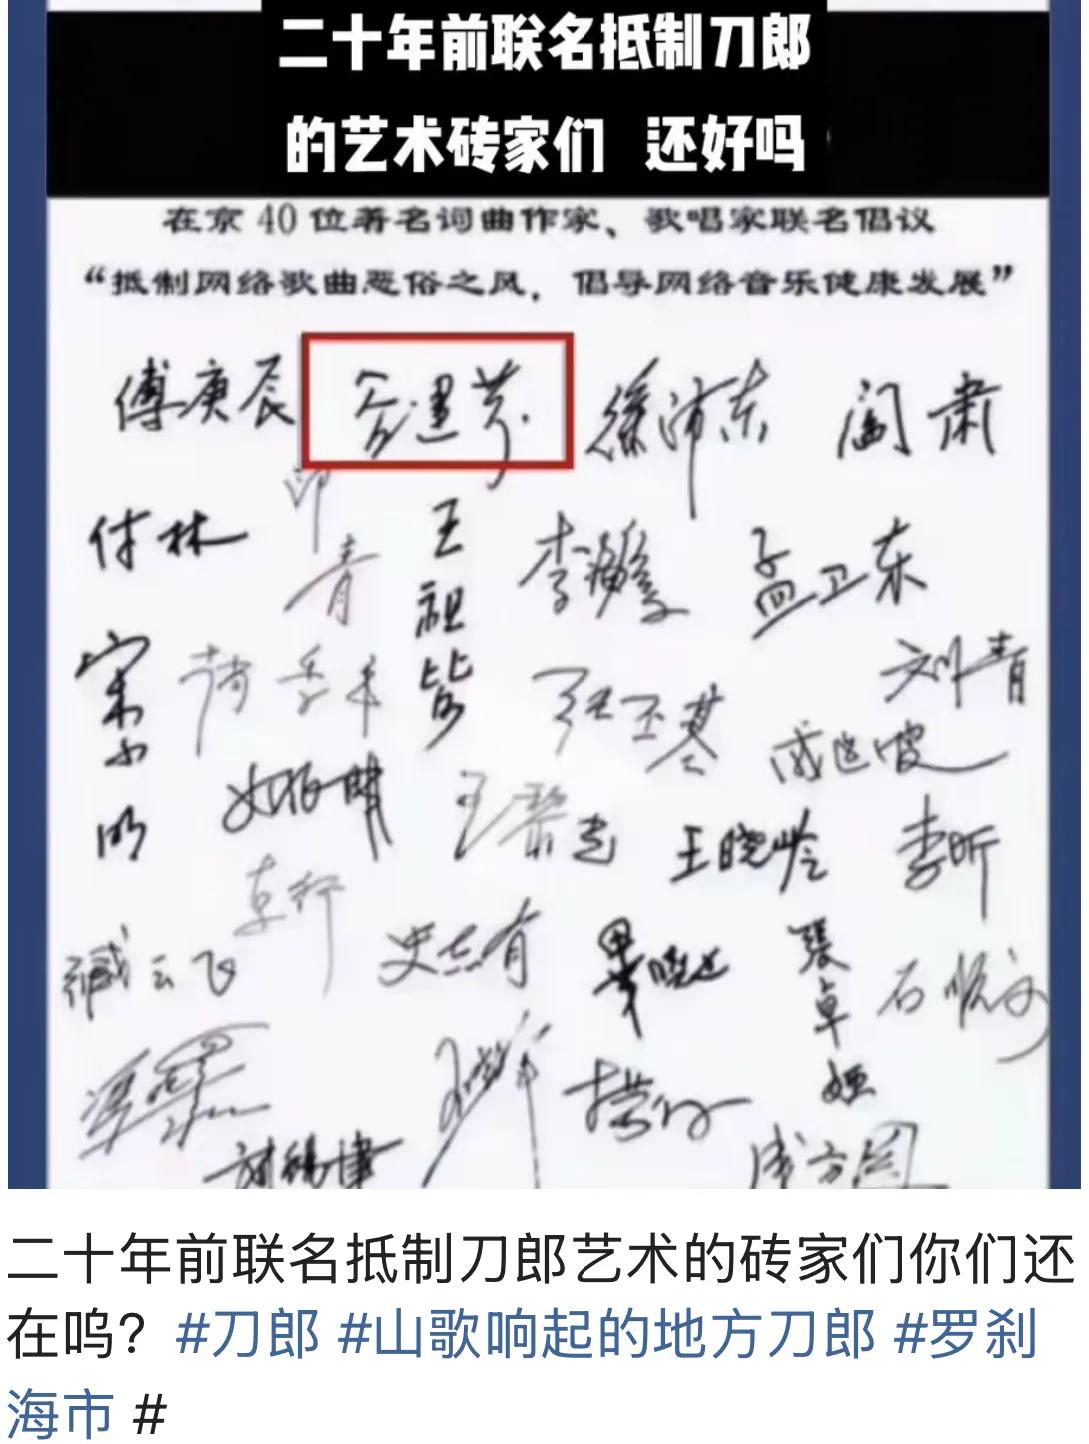 二十年前联名抵制刀郎
的艺术砖家们 还好吗
在京40位著名词曲作家、歌唱家联名倡议
“抵制网络歌曲恶俗之风，倡导网络音乐健康发展”
傅庚辰 谷建芬 徐沛东 阎肃
付林 印青 王祖皆 李海鹰 孟卫东
宋小明 刘青
戚建波
王黎光 王晓岭 李昕
臧云飞 史志有 张卓娅 石顺义
成方圆
二十年前联名抵制刀郎艺术的砖家们你们还
在呜？#刀郎 #山歌响起的地方刀郎 #罗刹
海市 #